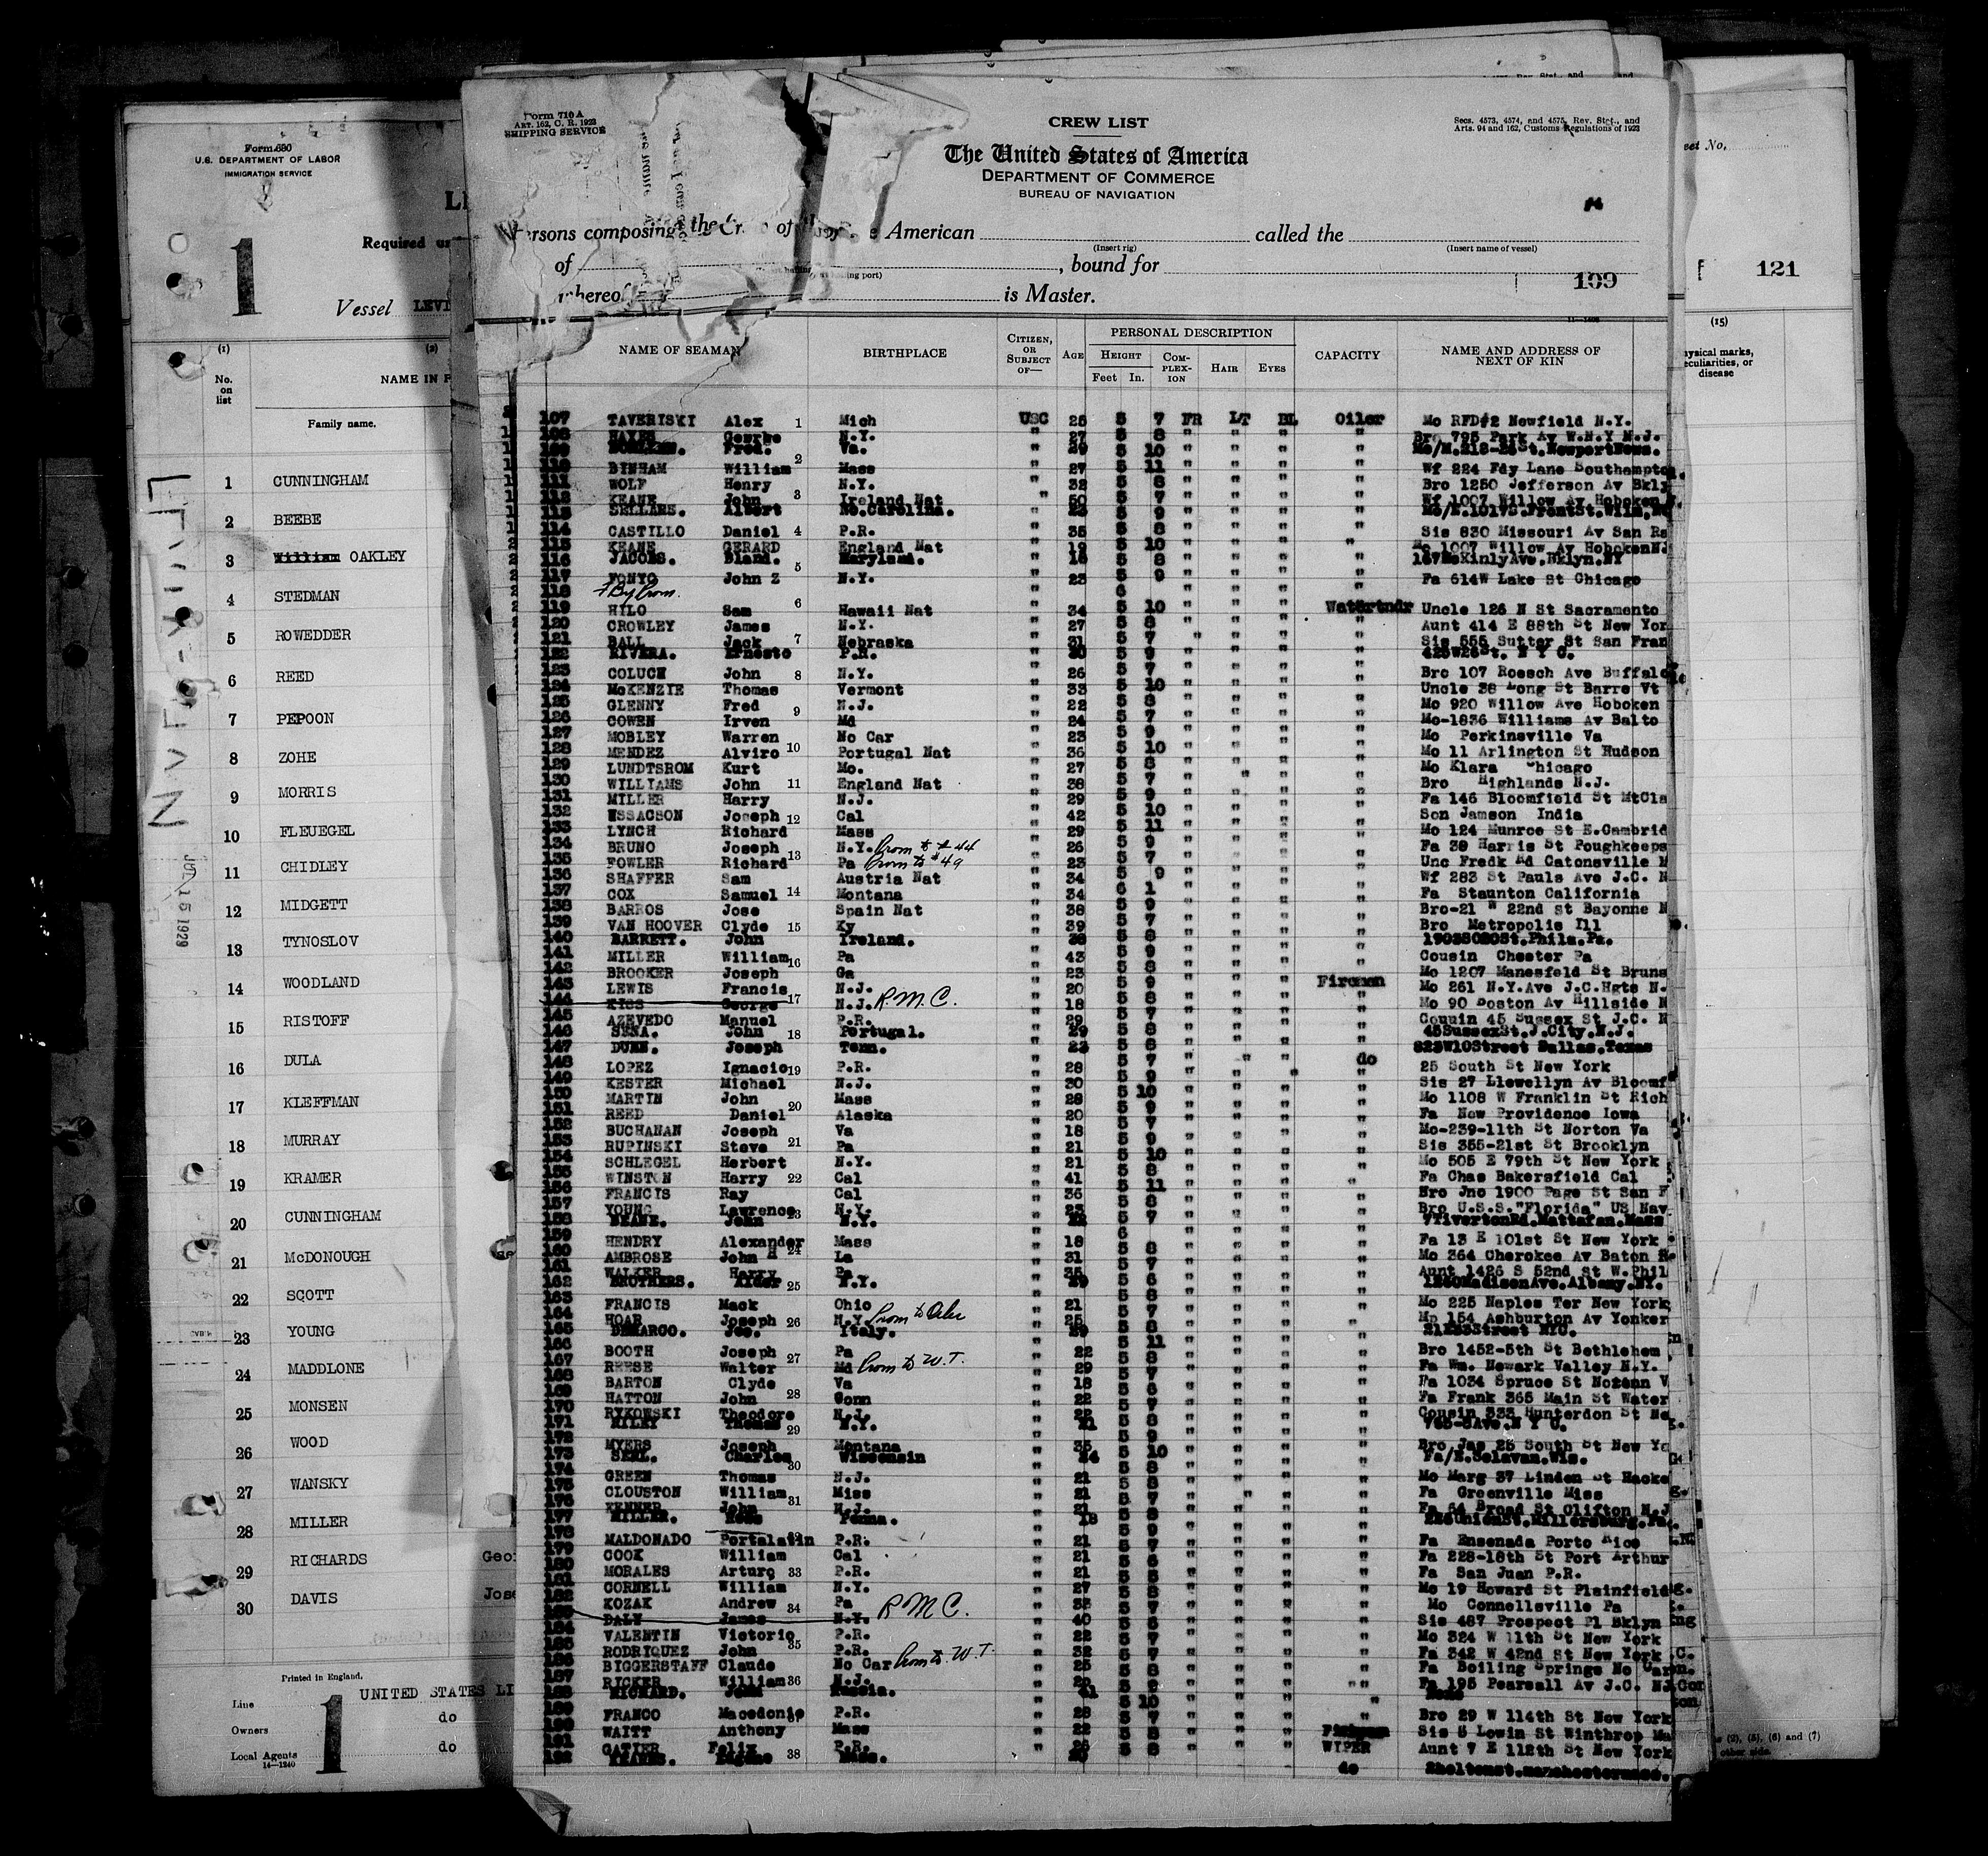 Form 680
U.S. DEPARTMENT OF LABOR
IMMIGRATION SERVICE
1
Required
Vessel LEVI
(1)
No. on list
NAME IN F
Family name.
1 CUNNINGHAM
2 BEEBE
3 William OAKLEY
4 STEDMAN
5 ROWEDDER
6 REED
7 PEPOON
8 ZOHE
9 MORRIS
10 FLEUEGEL
11 CHIDLEY
12 MIDGETT
13 TYNOSLOV
14 WOODLAND
15 RISTOFF
16 DULA
17 KLEFFMAN
18 MURRAY
19 KRAMER
20 CUNNINGHAM
21 McDONOUGH
22 SCOTT
23 YOUNG
24 MADDLONE
25 MONSEN
26 WOOD
27 WANSKY
28 MILLER
29 RICHARDS Geor
30 DAVIS Jose
Printed in England.
Line UNITED STATES LI
Owners do
Local Agents do
14—1240
1
15 1929
Form 710 A
ART. 162, C. R. 1923
SHIPPING SERVICE
CREW LIST
The United States of America
DEPARTMENT OF COMMERCE
BUREAU OF NAVIGATION
Secs. 4573, 4574, and 4575, Rev. Stat., and
Arts. 94 and 162, Customs Regulations of 1923
ersons composing the Cr of American called the
(Insert rig) (Insert name of vessel)
of , bound for
whereof is Master.
109
NAME OF SEAMAN BIRTHPLACE CITIZEN, OR SUBJECT OF— AGE PERSONAL DESCRIPTION CAPACITY NAME AND ADDRESS OF NEXT OF KIN
HEIGHT COM-PLEX-ION HAIR EYES
Feet In.
107 TAVERISKI Alex 1 Mich USC 25 5 7 FR LT BL Oiler Mo RFD#2 Newfield N.Y.
George N.Y. " 27 5 8 " " " " Bro 795 Park Av W.N.Y N.J.
Fred. Va. " 29 5 10 " " " "
2
BINHAM William Mass " 27 5 11 " " " " Wf 224 Fdy Lane Southampton
111 WOLF Henry N.Y. " 32 5 8 " " " " Bro 1250 Jefferson Av Bkly
KEANE John 3 Ireland Nat " 50 5 7 " " " " Wf 1007 Willow Av Hoboken
SELLARS. Albert No.Carolina. 5 9 " " " "
114 CASTILLO Daniel 4 P.R. " 35 5 8 " " " " Sis 830 Missouri Av San
115 KEANE GERARD England Nat " 19 5 10 " " " " 1007 Willow Av HobokenN.
116 JACOBS. Bland. 5 Maryland. " 5 8 " " " " McKinlyAve.Bklyn.NY
117 John Z N.Y. " 23 5 9 " " " " Fa 614W Lake St Chicago
118 6
119 HILO Sam 6 Hawaii Nat " 34 5 10 " " " Watertndr Uncle 126 N St Sacramento
120 CROWLEY James N.Y. " 27 5 8 " " " " Aunt 414 E 88th St New Yor
121 BALL Jack 7 Nebraska " 31 5 7 " " " " Sis 555 Sutter St San Fran
122 RIVERA. Ernesto P.R. " 30 5 9 " " " "
123 COLUCH John 8 N.Y. " 26 5 7 " " " " Bro 107 Roesch Ave Buffalo
124 McKENZIE Thomas Vermont " 33 5 10 " " " " Uncle 38 Long St Barre Vt
125 GLENNY Fred N.J. " 22 5 8 " " " " Mo 920 Willow Ave Hoboken
126 COWEN Irven 9 Md " 24 5 7 " " " " Mo-1836 Williams Av Balto
127 MOBLEY Warren No Car " 23 5 9 " " " " Mo Perkinsville Va
128 MENDEZ Alviro 10 Portugal Nat " 36 5 10 " " " " Mo 11 Arlington St Hudson
129 LUNDTSROM Kurt Mo. " 27 5 8 " " " " Mo Klara Chicago
130 WILLIAMS John 11 England Nat " 38 5 7 " " " " Bro Highlands N.J.
131 MILLER Harry N.J. " 29 5 9 " " " " Fa 146 Bloomfield St MtCla
132 USSACSON Joseph 12 Cal " 42 5 10 " " " " Son Jamson India
133 LYNCH Richard Mass " 29 5 11 " " " " Mo 124 Munroe St E.Cambrid
134 BRUNO Joseph N.Y. Prom to # 44 " 26 5 9 " " " " Fa 38 Harris St Poughkeeps
135 FOWLER Richard 13 Pa Prom to #49 " 23 5 7 " " " " Unc Fredk Rd Catonsville M
136 SHAFFER Sam Austria Nat " 34 5 9 " " " " Wf 283 St Pauls Ave J.C. N
137 COX Samuel 14 Montana " 34 6 1 " " " " Fa Staunton California
138 BARROS Jose Spain Nat " 38 5 9 " " " " Bro-21 W 22nd St Bayonne N
139 VAN HOOVER Clyde 15 Ky " 39 5 7 " " " " Bro Metropolis Ill
140 BARRETT. John Ireland. " 5 8 " " " "
141 MILLER William 16 Pa " 43 5 9 " " " " Cousin Chester Pa
142 BROOKER Joseph Ga " 23 5 8 " " " " Mo 1207 Manesfeld St Bruns
143 LEWIS Francis N.J. " 20 5 9 " " " Firemen Mo 261 N.Y.Ave J.C.Hgts N.
144 KISS George 17 N.J. R.M.C. " 18 5 8 " " " " Mo 90 Boston Av Hillside N
145 AZEVEDO Manuel P.R. " 29 5 7 " " " " Cousin 45 Sussex St J.C. N
146 SENA. John 18 Portugal. " 29 5 8 " " " " 45SussexSt.J.City.N.J.
147 DUNN. Joseph Tenn. " 23 5 8 " " " " 823W10Street Dallas.Texas
148 LOPEZ Ignacio 19 P.R. " 28 5 7 " " " do 25 South St New York
149 KESTER Michael N.J. " 30 5 9 " " " " Sis 27 Llewellyn Av Bloomf
150 MARTIN John Mass " 28 5 10 " " " " Mo 1108 W Franklin St Rich
151 REED Daniel 20 Alaska " 20 5 9 " " " " Fa New Providence Iowa
152 BUCHANAN Joseph Va " 18 5 7 " " " " Mo-239-11th St Norton Va
153 RUPINSKI Steve 21 Pa " 21 5 9 " " " " Sis 355-21st St Brooklyn
154 SCHLEGEL Herbert N.Y. " 21 5 10 " " " " Mo 505 E 79th St New York
155 WINSTON Harry 22 Cal " 41 5 8 " " " " Fa Chas Bakersfield Cal
156 FRANCIS Ray Cal " 36 5 11 " " " " Bro Jno 1900 Page St San F
157 YOUNG Lawrence 23 N.Y. " 23 5 8 " " " " Bro U.S.S."Florida" US Nav
158 John N.Y. " 5 7 " " " " 7TivertonRd.Mattapan.Mass
159 HENDRY Alexander Mass " 18 6 " " " " Fa 13 E 101st St New York
160 AMBROSE John H 24 La " 31 5 8 " " " " Mo 364 Cherokee Av Baton
161 WALKER Harry Pa " 35 5 7 " " " " Aunt 1426 S 52nd St W.Phil
162 BROTHERS. 25 N.Y. " 29 5 6 " " " " MadisonAve.Albany.NY.
163 FRANCIS Mack Ohio " 21 5 8 " " " " Mo 225 Naples Ter New York
164 HOAR Joseph 26 N.Y. Prom to Oiler " 25 5 7 " " " " Mo 154 Ashburton Av Yonker
165 DEMARCO. Joe. Italy. " 29 5 8 " " " "
166 BOOTH Joseph Pa " 22 5 11 " " " " Bro 1452-5th St Bethlehem
167 REESE Walter 27 Md Prom to W.T. " 29 5 8 " " " " Fa Wm. Newark Valley N.Y.
168 BARTON Clyde Va " 18 5 7 " " " " Fa 1034 Spruce St
169 HATTON John 28 Conn " 22 5 8 " " " " Fa Frank 365 Main St Water
170 RYKOWSKI Theodore N.J. " 22 5 7 " " " " Cousin 333 Hunterdon St Ne
171 Thomas 29 N.Y. " 21 5 8 " " " "
172 MYERS Joseph Montana " 35 5 9 " " " " Bro Jas 25 South St New Yo
173 Charles 30 Wisconsin " 24 5 10 " " " "
174 GREEN Thomas N.J. " 21 5 8 " " " " Mo Marg 37 Linden St Hacke
175 CLOUSTON William Miss " 21 5 8 " " " " Fa Greenville Miss
176 John 31 N.J. " 21 5 7 " " " " Fa 64 Broad St Clifton N.J
177 MILLER. Penna. " 18 5 8 " " " "
178 MALDONADO Portalatin P.R. " 21 5 9 " " " " Fa Ensenada Porto Rico
179 COOK William Cal " 21 5 7 " " " " Fa 228-18th St Port Arthur
180 MORALES Arturo 33 P.R. " 21 5 6 " " " " Fa San Juan P.R.
181 CORNELL William N.Y. " 27 5 8 " " " " Mo 19 Howard St Plainfield
182 KOZAK Andrew 34 Pa " 33 5 8 " " " " Mo Connellsville Pa
183 DALY James N.Y. R M C. " 40 5 7 " " " " Sis 487 Prospect Pl Bklyn
184 VALENTIN Victorio P.R. " 22 5 6 " " " " Mo 324 W 11th St New York
185 RODRIQUEZ John 35 P.R. " 32 5 7 " " " " Fa 342 W 42nd St New York
186 BIGGERSTAFF Claude No Car Prom to W.T. " 25 5 7 " " " " Fa Boiling Springs No Car
187 RICKER William 36 N.J. " 5 8 " " " " Fa 195 Pearsall Av J.C. NJ
188 RICHARD. John Russia. "
189 FRANCO Macedonio P.R. " 28 5 10 " " " " Bro 29 W 114th St New York
190 WAITT Anthony Mass " 22 5 7 " " " Sis 5 Lewin St Winthrop Ma
191 GATIER Felix P.R. " 5 8 " " " WIPER Aunt 7 E 112th St New York
192 38 Mass. 5 8 do
eet No.
121
(15)
ysical marks,
eculiarities, or
disease
(2), (5), (6) and (7)
other side.